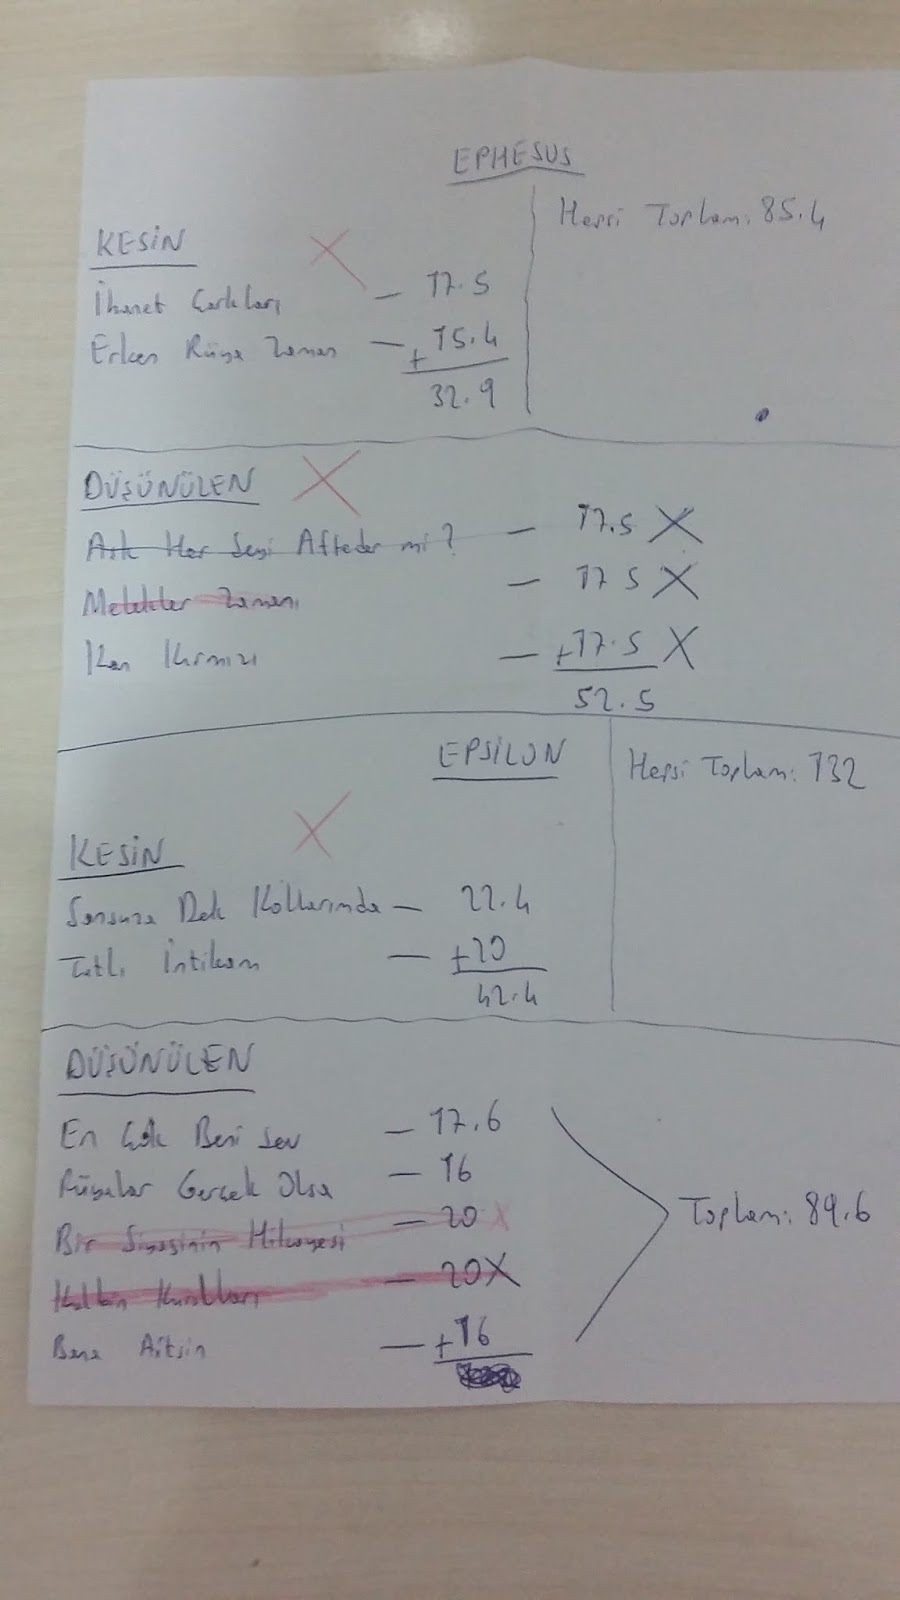 EPHESUS
Hepsi Toplam: 85.4
KESİN
İhanet Çarkları — 17.5
Erken Rüya Zamanı — + 15.4
32.9
DÜŞÜNÜLEN
Aşk Her Şeyi Affeder mi? — 17.5 X
Melekler Zamanı — 17.5 X
Kan Kırmızı — +17.5 X
52.5
EPSİLON
Hepsi Toplam: 132
KESİN
Sonsuza Dek Kollarımda — 22.4
Tatlı İntikam — +20
42.4
DÜŞÜNÜLEN
En Çok Beni Sev — 17.6
Rüyalar Gerçek Olsa — 16
Bir Simginin Hikayesi — 20 X
Kalbin Kuralları — 20 X
Bana Aitsin — +16
Toplam: 89.6